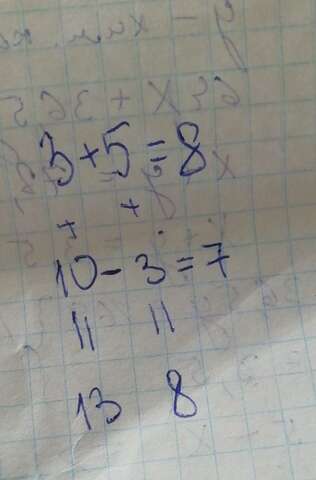 3+5=8
+ +
10-3=7
|| ||
13 8